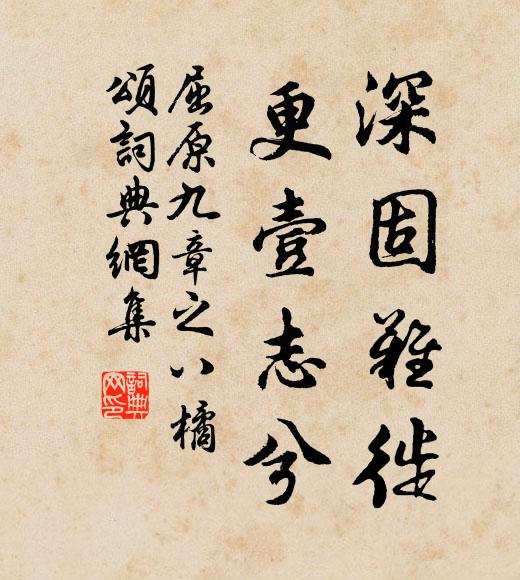 深固難徙
更壹志兮
屈原九章之八橘
頌詞典網集
詞典
网印